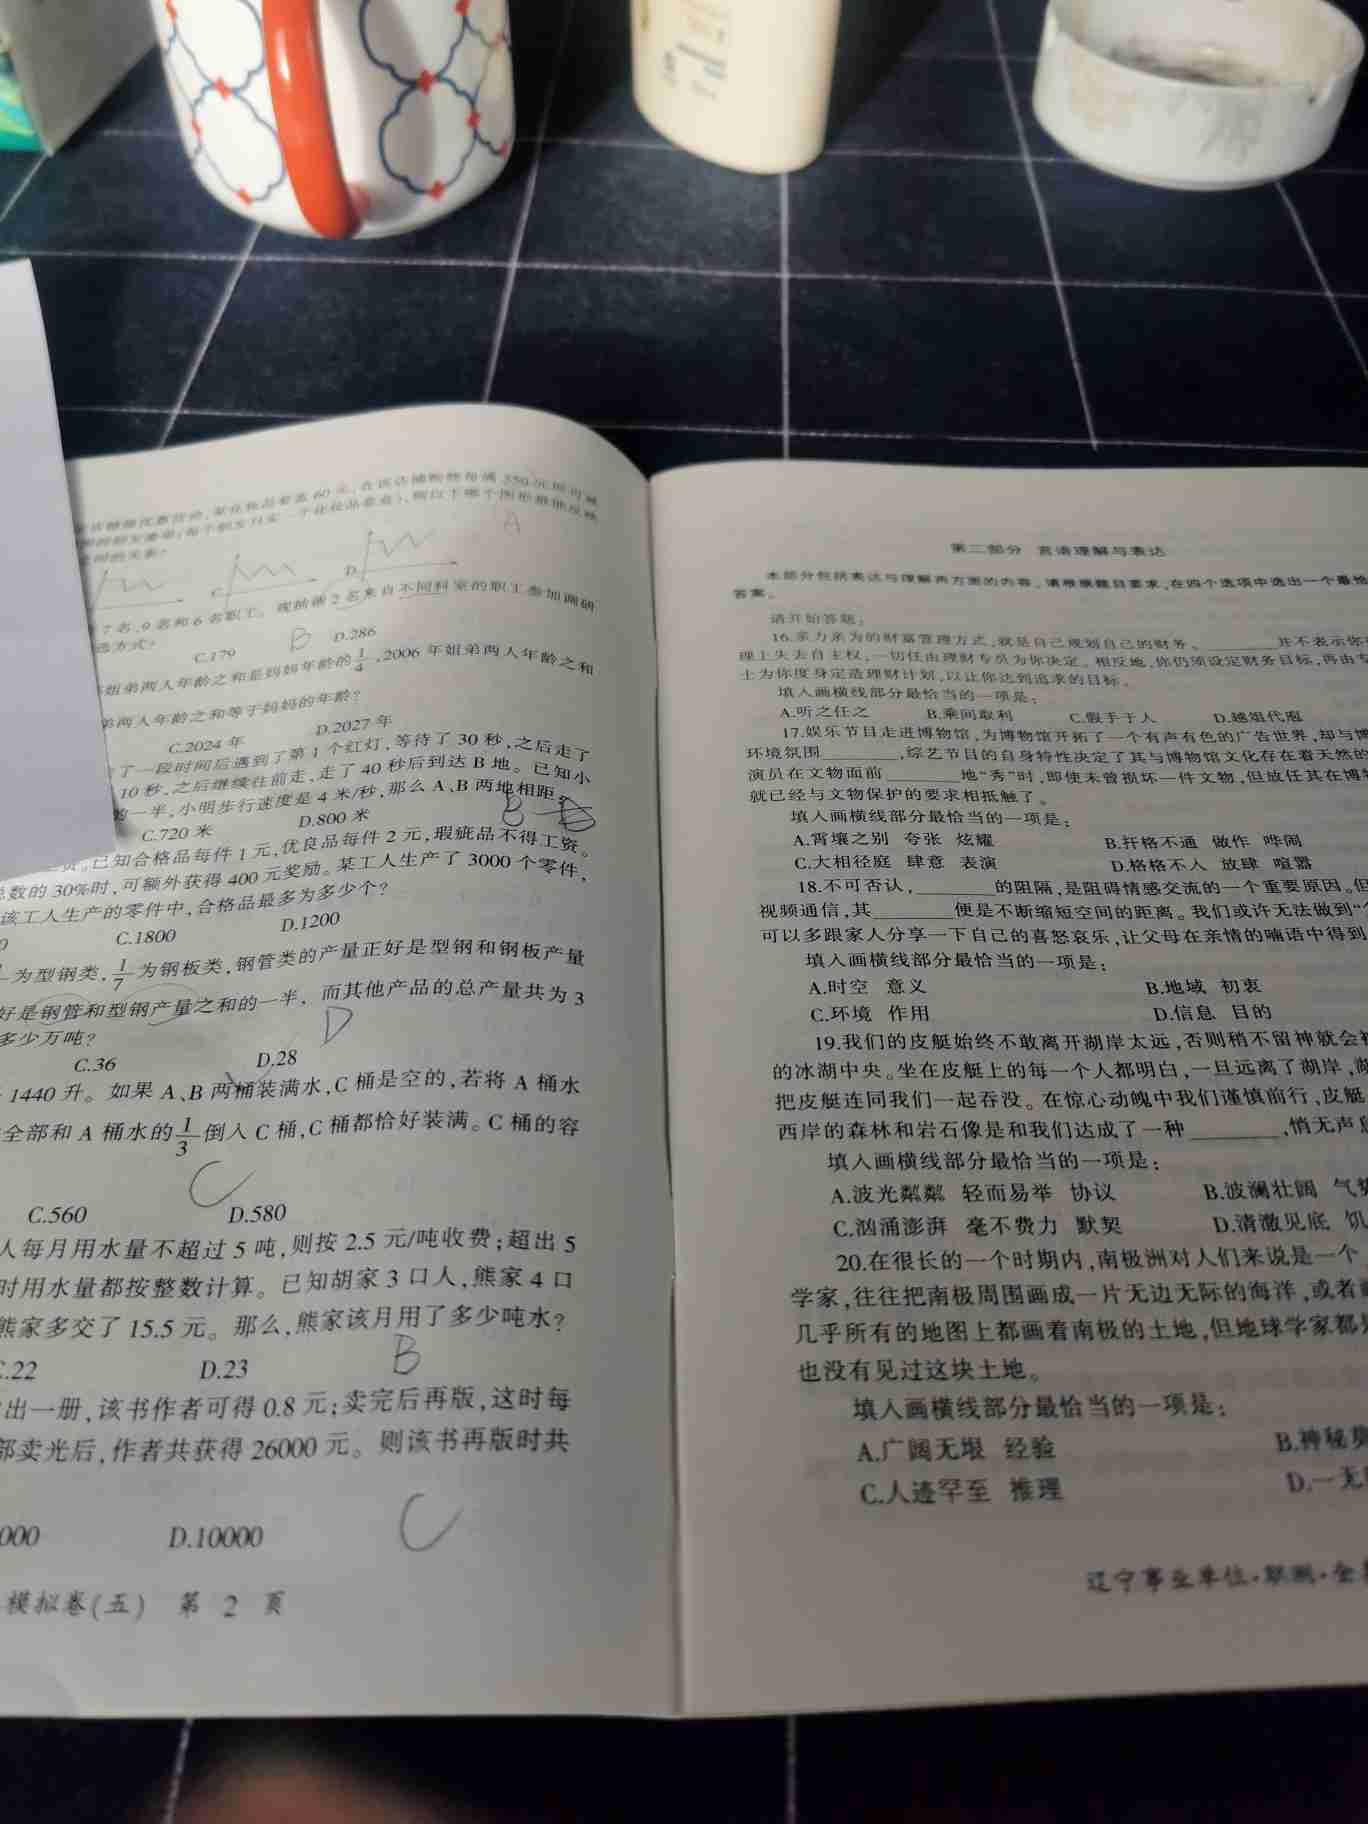 A
7名,9名和6名职工。现抽调2名来自不同科室的职工参加调研
选方式?
B
C.179
D.286
姐弟两人年龄之和是妈妈年龄的1/4,2006年姐弟两人年龄之和
弟两人年龄之和等于妈妈的年龄?
C.2024年
D.2027年
了一段时间后遇到了第1个红灯,等待了30秒,之后走了
10秒,之后继续往前走,走了40秒后到达B地。已知小
的一半,小明步行速度是4米/秒,那么A、B两地相距
B
C.720米
D.800米
已知合格品每件1元,优良品每件2元,瑕疵品不得工资。
总数的30%时,可额外获得400元奖励。某工人生产了3000个零件,
该工人生产的零件中,合格品最多为多少个?
C.1800
D.1200
为型钢类,1/7为钢板类,钢管类的产量正好是型钢和钢板产量
好是钢管和型钢产量之和的一半,而其他产品的总产量共为3
多少万吨?
D
C.36
D.28
1440升。如果A、B两桶装满水,C桶是空的,若将A桶水
全部和A桶水的1/3倒入C桶,C桶都恰好装满。C桶的容
C
C.560
D.580
人每月用水量不超过5吨,则按2.5元/吨收费;超出5
时用水量都按整数计算。已知胡家3口人,熊家4口
熊家多交了15.5元。那么,熊家该月用了多少吨水?
B
C.22
D.23
出一册,该书作者可得0.8元;卖完后再版,这时每
部卖光后,作者共获得26000元。则该书再版时共
C
000
D.10000
模拟卷(五) 第 2 页
第二部分 言语理解与表达
本部分包括表达与理解两方面的内容。请根据题目要求,在四个选项中选出一个最恰
答案。
请开始答题:
16.亲力亲为的财富管理方式,就是自己规划自己的财务。________并不表示你
理上失去自主权,一切任由理财专员为你决定。相反地,你仍须设定财务目标,再由专
士为你度身定造理财计划,以让你达到追求的目标。
填入画横线部分最恰当的一项是:
A.听之任之 B.乘间取利 C.假手于人 D.越俎代庖
17.娱乐节目走进博物馆,为博物馆开拓了一个有声有色的广告世界,却与博
环境氛围________,综艺节目的自身特性决定了其与博物馆文化存在着天然的
演员在文物面前________地“秀”时,即使未曾损坏一件文物,但放任其在博物
就已经与文物保护的要求相抵触了。
填入画横线部分最恰当的一项是:
A.霄壤之别 夸张 炫耀 B.扞格不通 做作 哗闹
C.大相径庭 肆意 表演 D.格格不入 放肆 喧嚣
18.不可否认,________的阻隔,是阻碍情感交流的一个重要原因。但
视频通信,其________便是不断缩短空间的距离。我们或许无法做到“
可以多跟家人分享一下自己的喜怒哀乐,让父母在亲情的喃语中得到
填入画横线部分最恰当的一项是:
A.时空 意义 B.地域 初衷
C.环境 作用 D.信息 目的
19.我们的皮艇始终不敢离开湖岸太远,否则稍不留神就会
的冰湖中央。坐在皮艇上的每一个人都明白,一旦远离了湖岸,
把皮艇连同我们一起吞没。在惊心动魄中我们谨慎前行,皮艇
西岸的森林和岩石像是和我们达成了一种________,悄无声
填入画横线部分最恰当的一项是:
A.波光粼粼 轻而易举 协议 B.波澜壮阔 气
C.汹涌澎湃 毫不费力 默契 D.清澈见底
20.在很长的一个时期内,南极洲对人们来说是一个
学家,往往把南极周围画成一片无边无际的海洋,或者
几乎所有的地图上都画着南极的土地,但地球学家都
也没有见过这块土地。
填入画横线部分最恰当的一项是:
A.广阔无垠 经验 B.神秘
C.人迹罕至 推理 D.一无
辽宁事业单位·联测·全